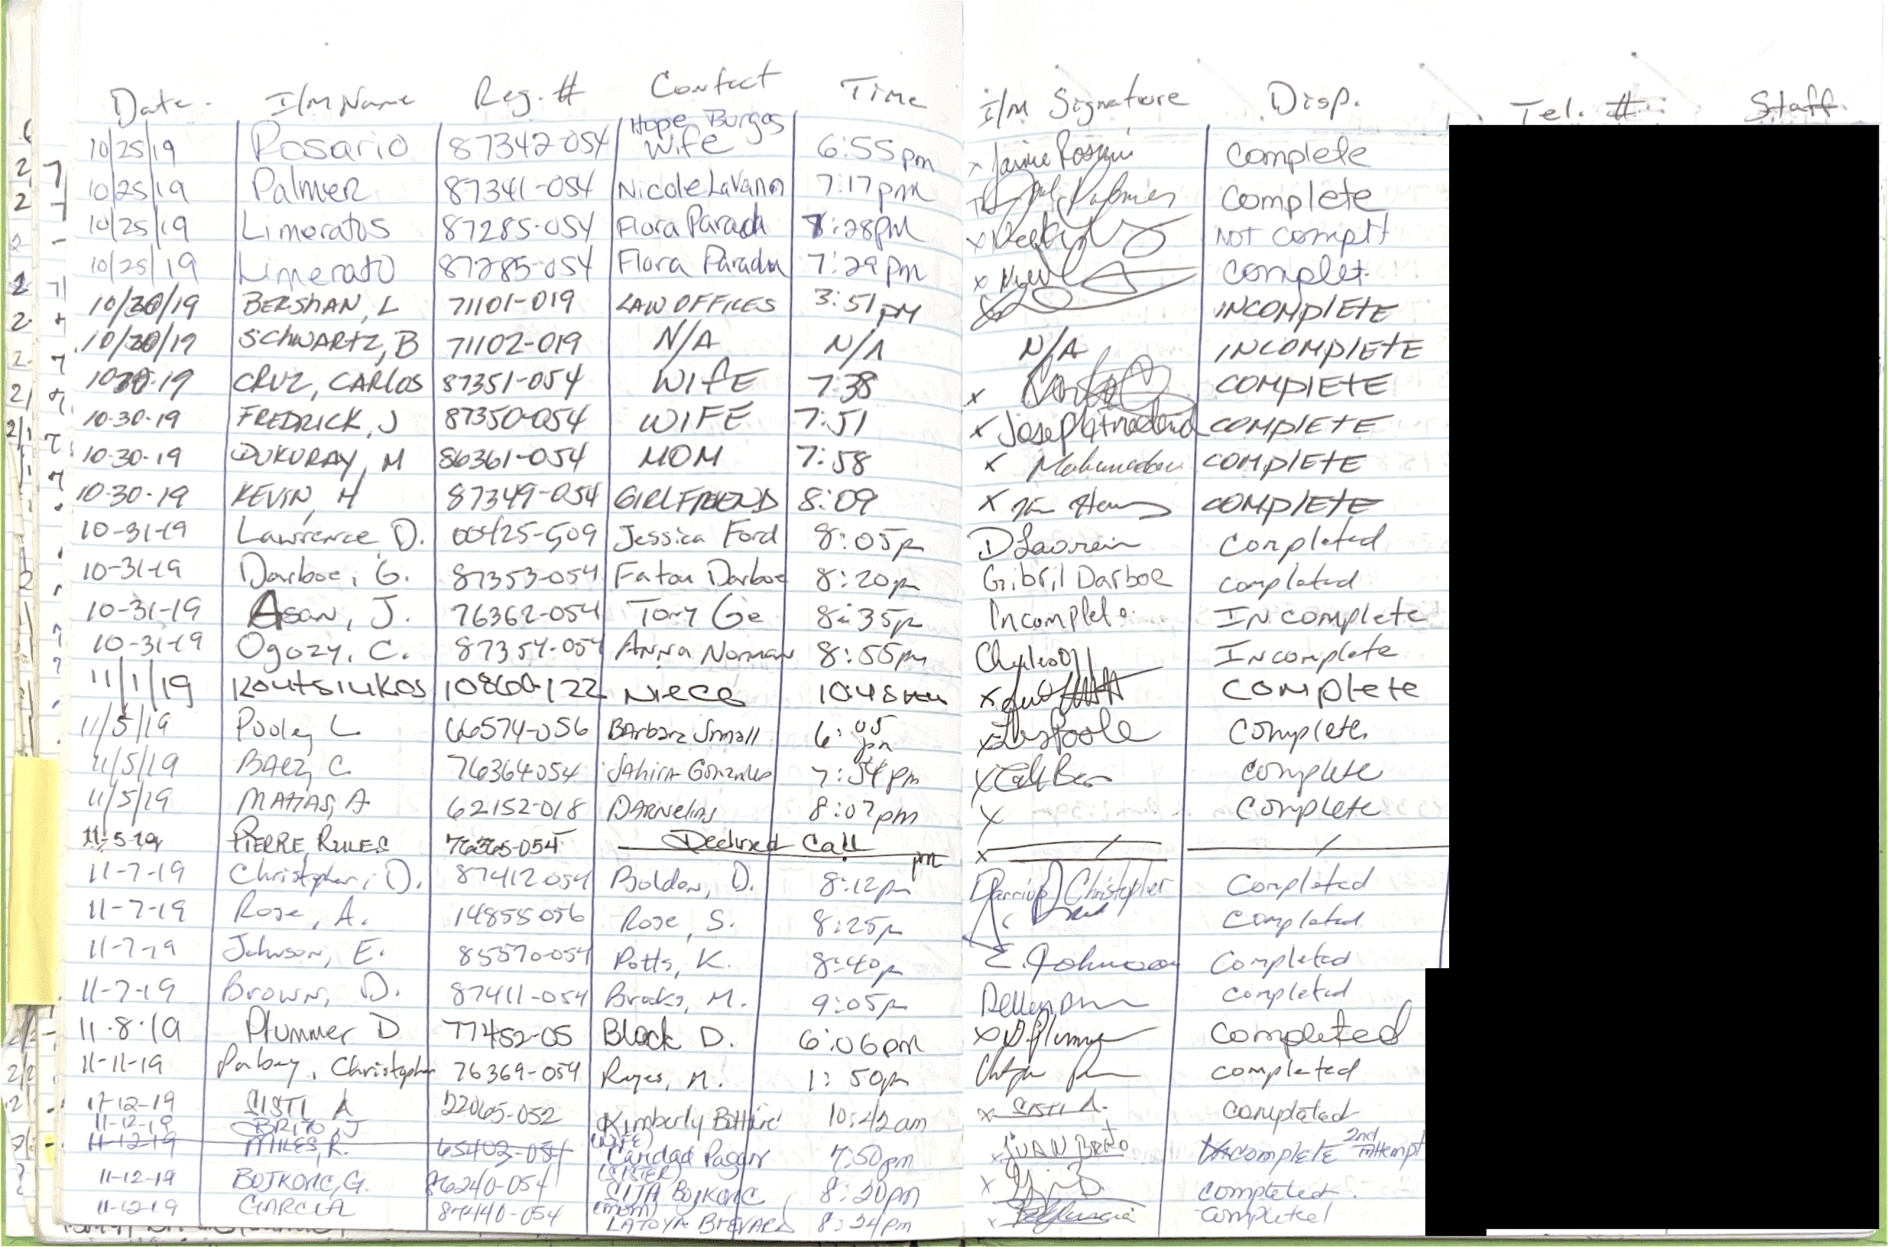 Date. I/M Name Reg. # Contact Time I/M Signature Disp. Tel. # Staff
10/25/19 Rosario 87342-054 Hope Burgos Wife 6:55pm x Jaime Rosario Complete
10/25/19 Palmer 87341-054 Nicole LaVann 7:17pm Palmer Complete
10/25/19 Limeratos 87285-054 Flora Parada 7:28PM x NOT Complt
10/25/19 Limerato 87285-054 Flora Parada 7:29pm x Complet.
10/30/19 BERSHAN, L 71101-019 LAW OFFICES 3:51pm x INCOMPLETE
10/30/19 SCHWARTZ, B 71102-019 N/A N/A N/A INCOMPLETE
10-30-19 CRUZ, CARLOS 87351-054 WIFE 7:38 x COMPLETE
10-30-19 FREDRICK, J 87350-054 WIFE 7:51 x Joseph COMPLETE
10-30-19 DUKURAY, M 86361-054 MOM 7:58 x Mahamadou COMPLETE
10-30-19 KEVIN, H 87349-054 GIRLFRIEND 8:09 x COMPLETE
10-31-19 Lawrence D. 00425-509 Jessica Ford 8:05p Completed
10-31-19 Darboe, G. 87353-054 Fatou Darboe 8:20p Gibril Darboe completed
10-31-19 Asan, J. 76362-054 Tony Ge 8:35p Incomplete Incomplete
10-31-19 Ogozy, C. 87354-054 Anna Norman 8:55pm Incomplete
11/1/19 Koutsiukos 10860-122 Niece 10:48 x Complete
11/5/19 Pooley L 66574-056 Barbara Small 6:05 pm x Complete
11/5/19 BAEZ, C. 76364054 Jahira Gonzalez 7:54pm x Complete
11/5/19 MATIAS, A 62152-018 8:07pm x Complete
11-5-19 PIERRE, RULES 76365-054 Declined Call pm x
11-7-19 Christopher, D. 87412-054 Bolden, D. 8:12p Christopher Completed
11-7-19 Rose, A. 14855056 Rose, S. 8:25p Completed
11-7-19 Johnson, E. 85570-054 Potts, K. 8:40p E. Johnson Completed
11-7-19 Brown, D. 87411-054 Brooks, M. 9:05p Completed
11.8.19 Plummer D 77452-05 Block D. 6:06pm x D. Plummer Completed
11-11-19 Christopher 76369-054 Reyes, M. 1:50pm completed
11-12-19 SISTI A 22065-052 Kimberly 10:42am x SISTI A. Completed
11-12-19 BRITO, J
11-12-19 MILES, R. 65402-054 (WIFE) Caridad 7:50pm x JUAN BRITO complete 2nd Attempt
11-12-19 BOJKOVIC, G. 76240-054 (SISTER) BOJKOVIC 8:20pm x completed.
11-12-19 GARCIA 87440-054 (mom) LATOYA BREVARD 8:24pm x completed